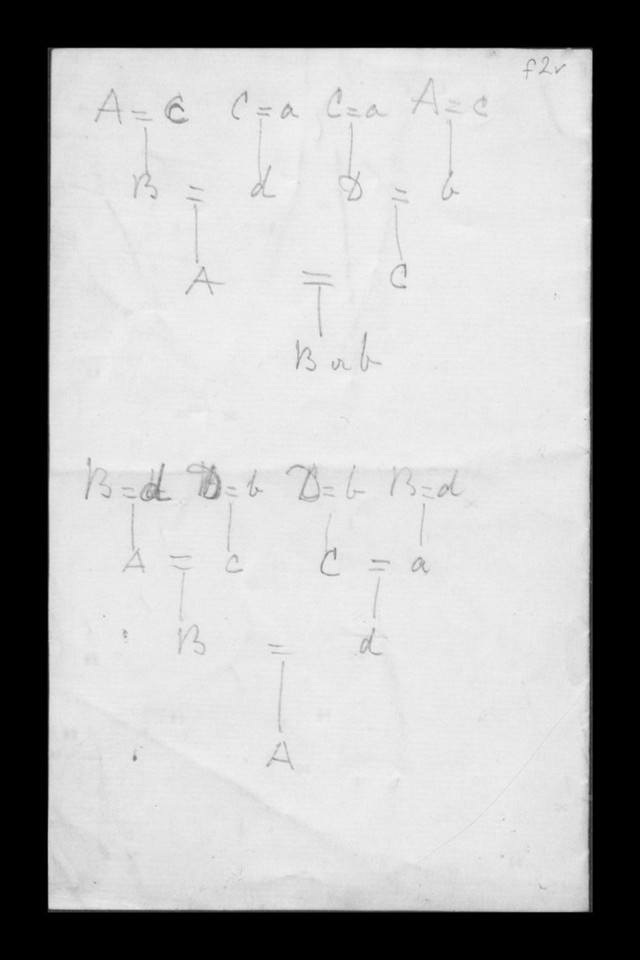 f2v
A = c C = a C = a A = c
B = d D = b
A = C
B or b
B = d D = b D = b B = d
A = c C = a
B = d
A